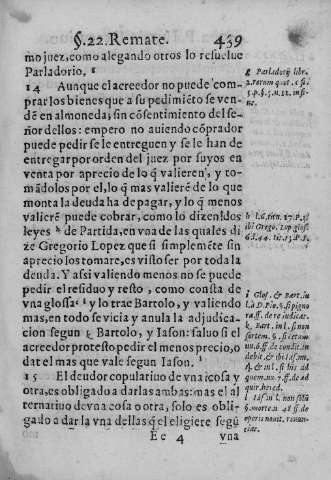 §. 22. Remate. 439
mo juez, como alegando otros lo resuelue
Parladorio. ᵍ
14 Aunque el acreedor no puede com-
prar los bienes que a su pedimiẽto se ven-
dẽ en almoneda; sin cõsentimiento del se-
ñor dellos: empero no auiendo cõprador
puede pedir se le entreguen y se le han de
entregar por orden del juez por suyos en
venta por aprecio de lo q̃ valieren, y to-
mãdolos por el, lo q̃ mas valierẽ de lo que
monta la deuda ha de pagar, y lo q̃ menos
valierẽ puede cobrar, como lo dizen los
leyes ʰ de Partida, en vna de las quales di
ze Gregorio Lopez que si simplemẽte sin
aprecio los tomare, es visto ser por toda la
deuda. Y assi valiendo menos no se puede
pedir el residuo y resto, como consta de
vna glossa ⁱ y lo trae Bartolo, y valiendo
mas, en todo se vicia y anula la adjudica-
cion segun k Bartolo, y Iason: saluo si el
acreedor protestò pedir el menos precio, o
dat el mas vale segun Iason. ˡ
15 El deudor copulatiuo de vna cosa y
otra, es obligado a darlas ambas: mas el al
ternatiuo de vna cosa o otra, solo es obli-
gado a dar la vna dellas q̃ el eligiere segũ
Ee 4 vna
g Parladorij libr.
2. rerum quot. c. fi
5. p. §. 5. n. 12. in fi-
ne.
ibi Grego. Lop. gloss
6. l. 44. tit. 13. p. 5.
i Glos. & Bart. in
ra. ff. de re iudicar.
k. Bart. in l. si non
sortem. §. si centum
vn. d. ff. de condit. in
debit. & ibi Iason.
quem. nu. 7. ff. de ad
quir. hered.
l Ias. in l. non solũ
§. morte. n. 48 ff. de
operis noui. nunc-
tiat.